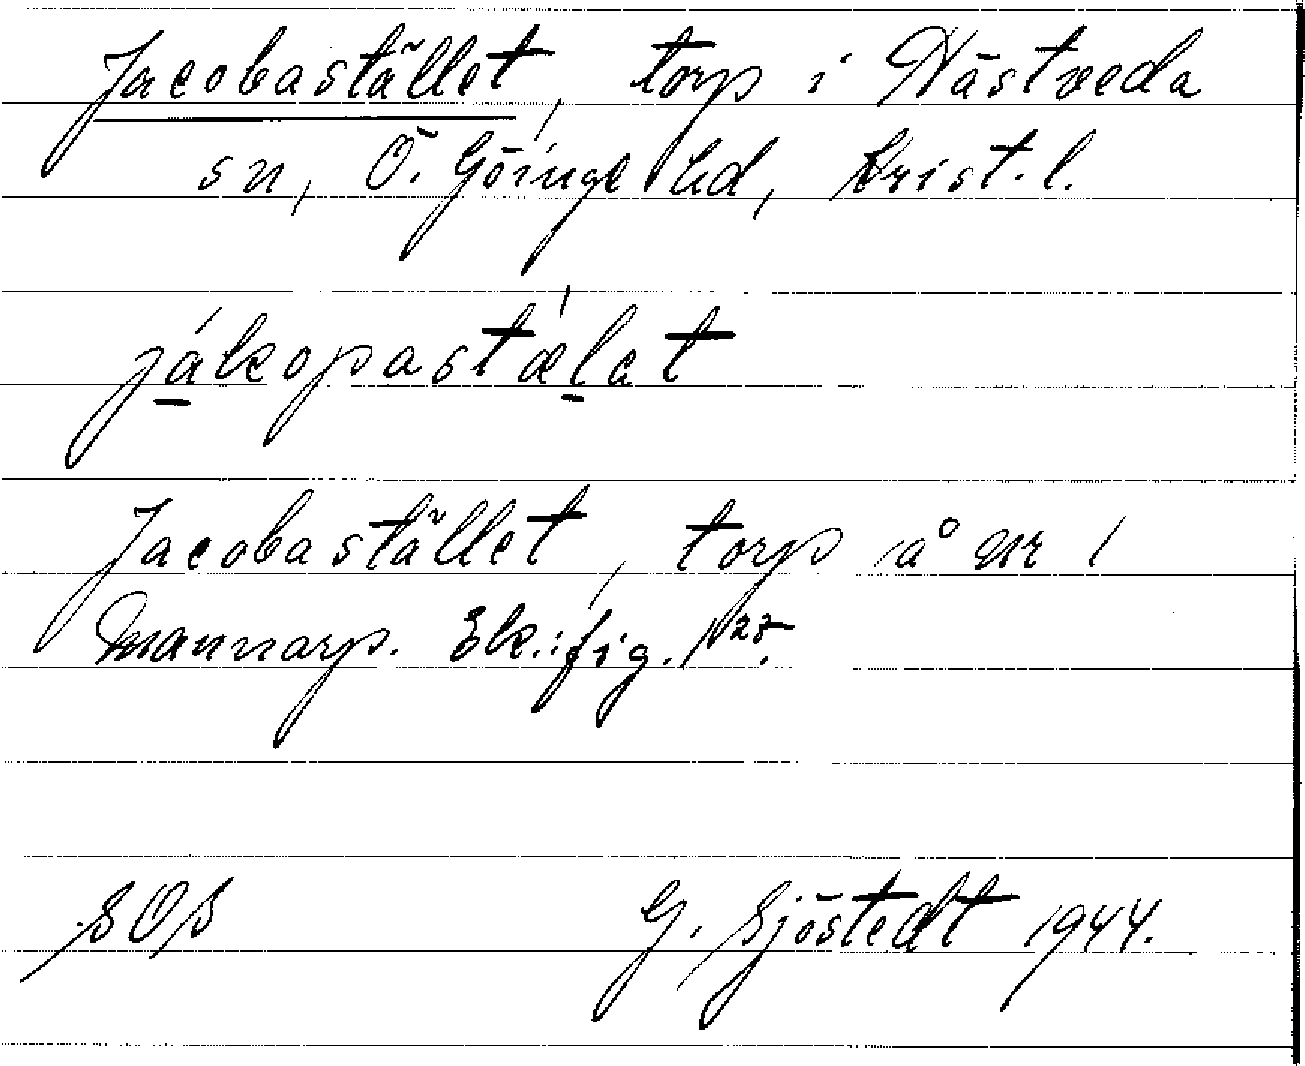 Jacobastället, torp i Hästveda
sn, Ö. Göinge hd, Krist. l.
jákopastæ̀let
Jacobastället, torp å nr 1
Mannarp. Ek.: fig. 128.
SOS G. Sjöstedt 1944.